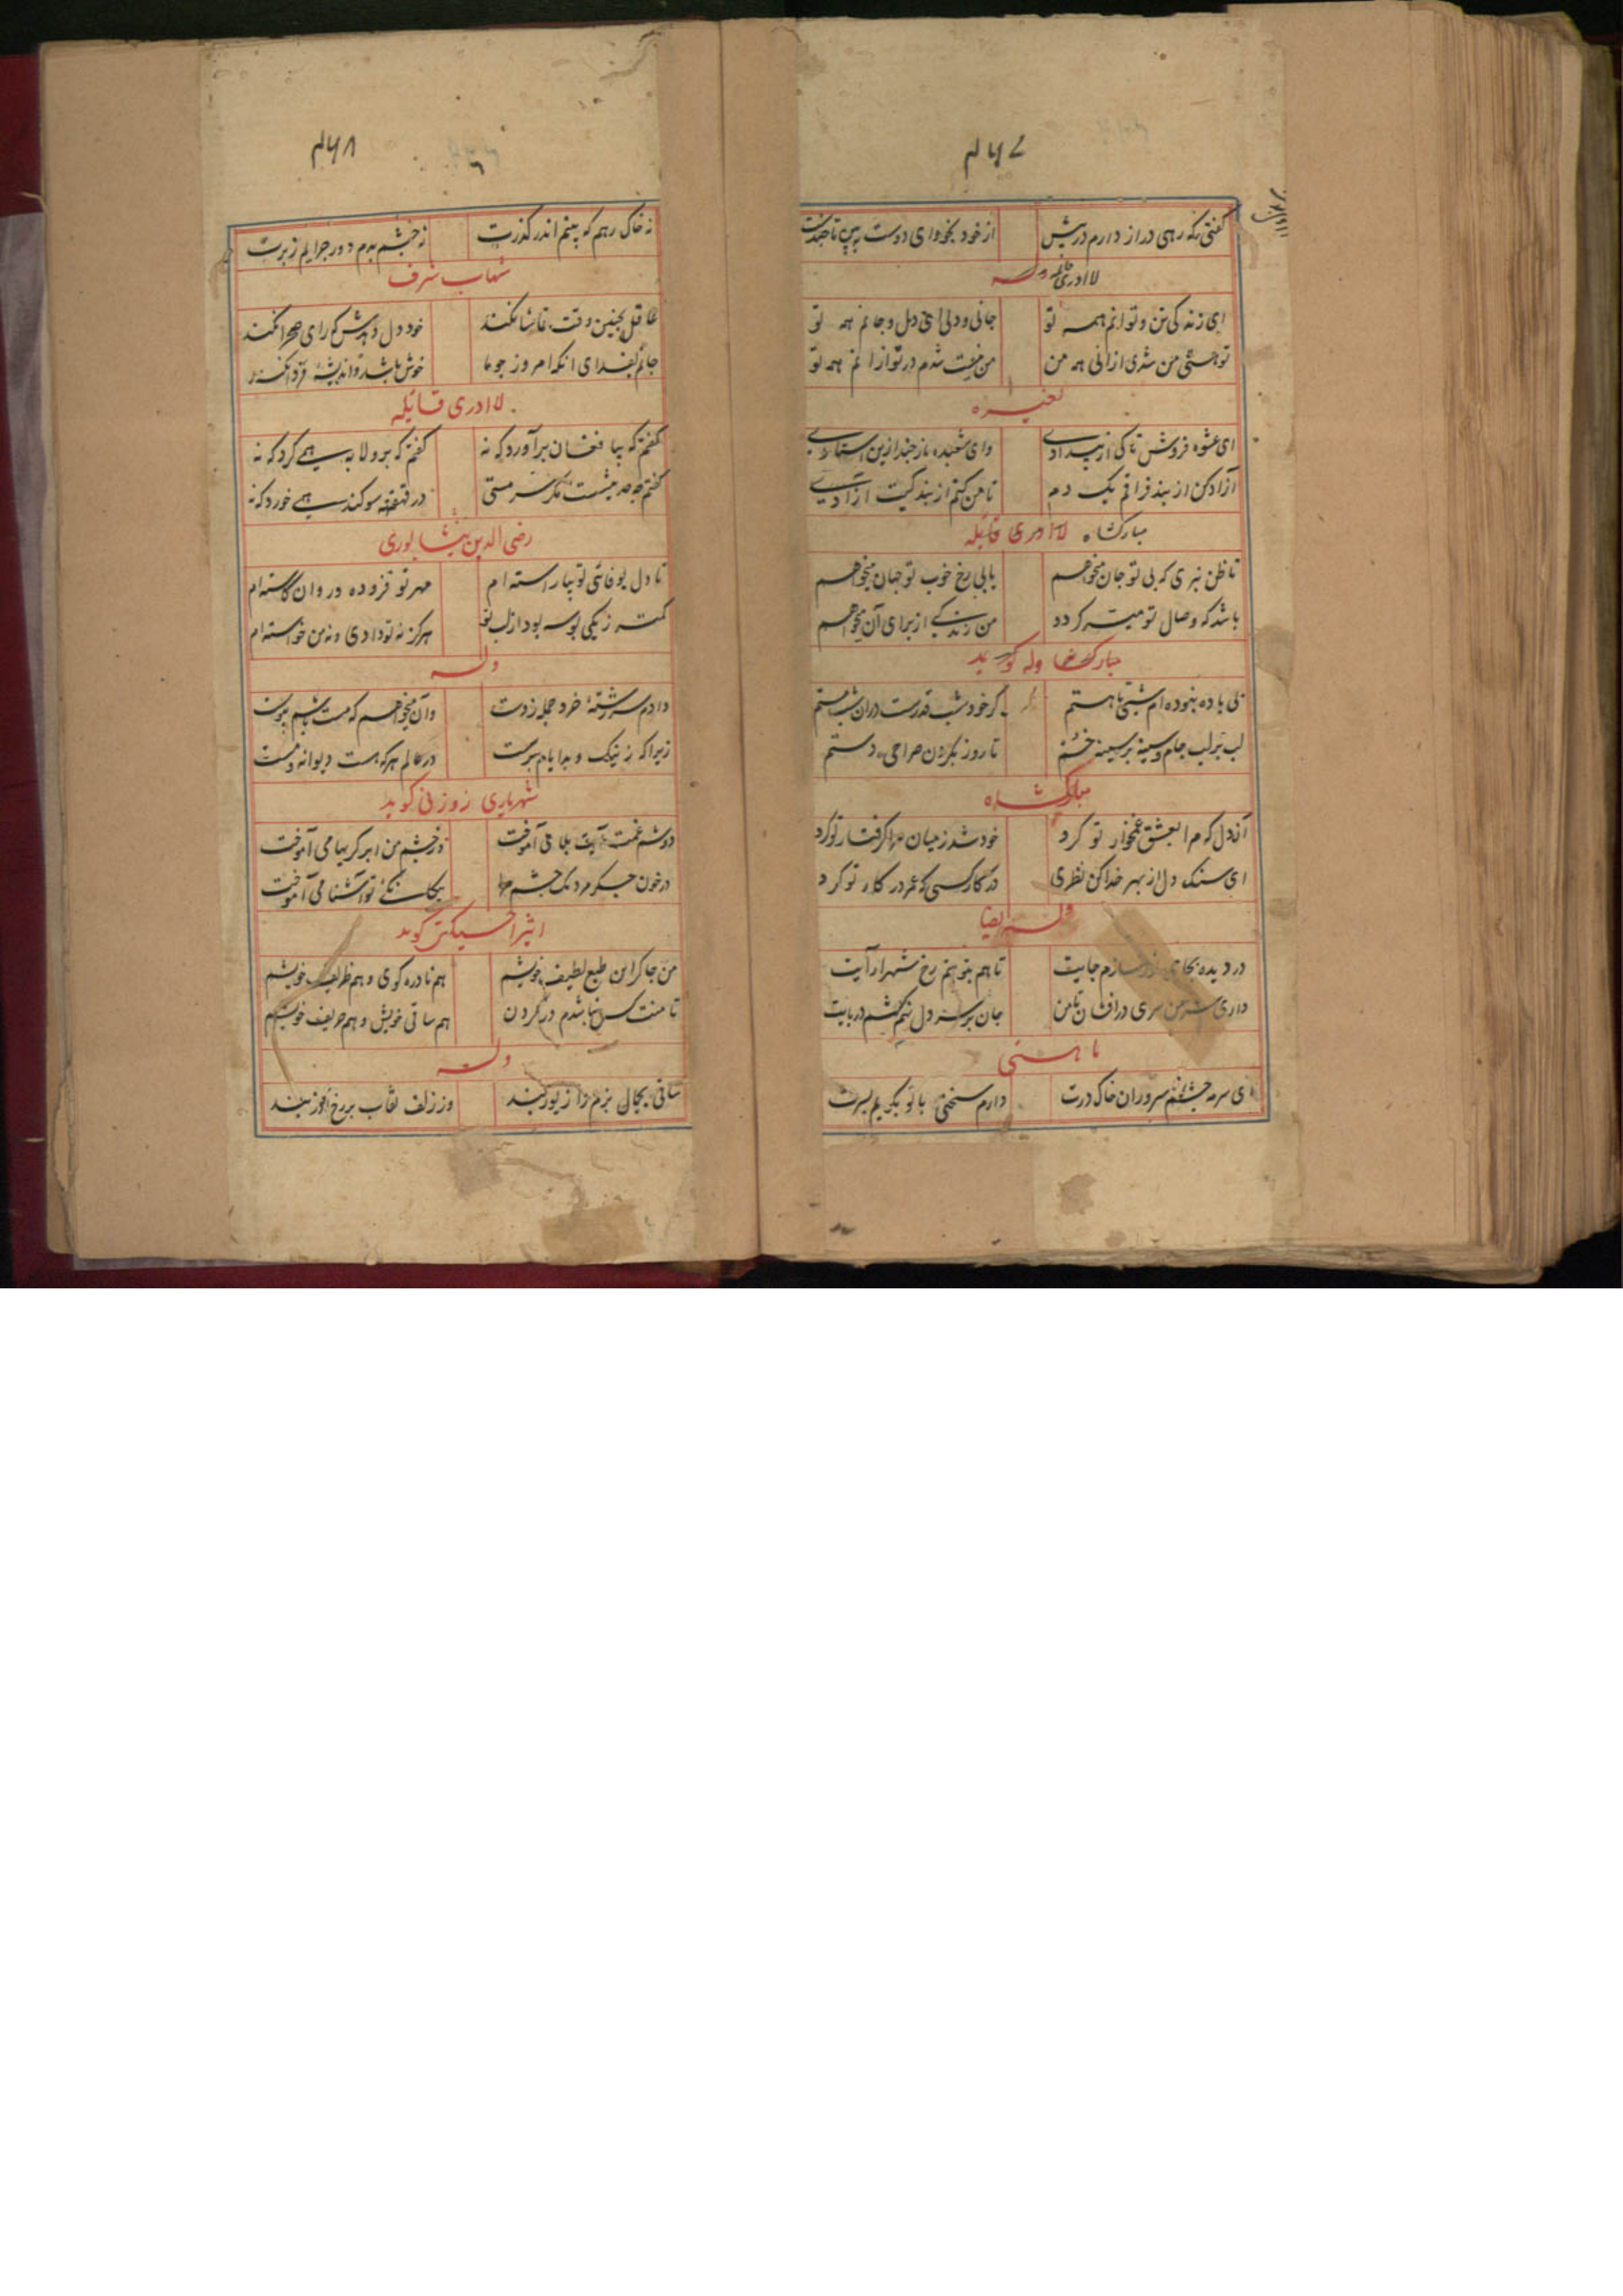 ۴۶۷
گفتی که رهی دراز دارم در پیش از خود بخود ای دوست
لا ادری قائله وله
ای زندگی تن و توانم همه تو جانی و دلی ای دل و جانم همه تو
تو هستی من شدی ازانی همه من من نیست شدم در تو ازانم همه تو
لغیره
ای عشوه فروش تا کی از بیدادی وای شعبده باز چند ازین استادی
آزاد کن از بند فراقم یک دم تا من کنم از بندگیت آزادی
مبارکشاه لا ادری قائله
تا ظن نبری که بی تو جان میخواهم یا بی رخ خوب تو جهان میخواهم
باشد که وصال تو میسر گردد من زندگی از برای آن میخواهم
مبارکشاه وله گوید
بی باده نبوده ام شبی تا هستم گر خود شب قدرست دران شب مستم
لب بر لب جام و سینه بر سینه خم تا روز بگردن صراحی دستم
مبارکشاه
آن دل که مرا بعشق غمخوار تو کرد خود شد ز میان مرا گرفتار تو کرد
ای سنگ دل از بهر خدا کن نظری در کار کسی که عمر در کار تو کرد
وله ایضا
در دیده بجای سازم جایت تا هم بتو بینم رخ شهر آرایت
داری سر من سری درافشان تا من جان بر سر دل نهم کشم در پایت
ای سرمه چشم سروران خاک درت دارم سخنی با تو بگویم بسرت
۴۶۸
نه خاک رهم که بینم اندر گذرت نه چشم بدم دور چرایم ز برت
شهاب شرف
عاقل بچنین وقت تماشا نکند خود دل دهدش که رای صحرا نکند
جانم بفدای انکه امروز چو ما خوش باشد و اندیشه فردا نکند
لا ادری قائله
گفتم که بیا فغان برآورد که نه گفتم که برو لابه همی کرد که نه
گفتم مگر سر مستی در قهقهه سوگند همی خورد که نه
رضی الدین نیشابوری
تا دل بوفای تو بیاراسته ام مهر تو فزوده در وان کاسته ام
کمتر ز یکی بوسه بود از لب تو هرگز نه تو دادی و نه من خواسته ام
وله
دادم سر رشته خرد جمله ز دست وان میخواهم که مست باشم پیوست
زیراکه ز نیک و بد ایام برست در عالم هرکه هست دیوانه و مست
شهریاری زوزنی گوید
دوشم غمت آیت بلا می آموخت وز چشم من ابر گریها می آموخت
در خون جگر مردمک چشم مرا بیگانگی تو آشنا می آموخت
اثیر اخسیکتی گوید
من چاکر این طبع لطیف خویشم هم نادره گوی و هم ظریف خویشم
تا منت کس نباشدم در گردن هم ساقی خویش و هم حریف خویشم
وله
ساقی بجمال بزم را زیور بند وز زلف نقاب بر رخ انور بند